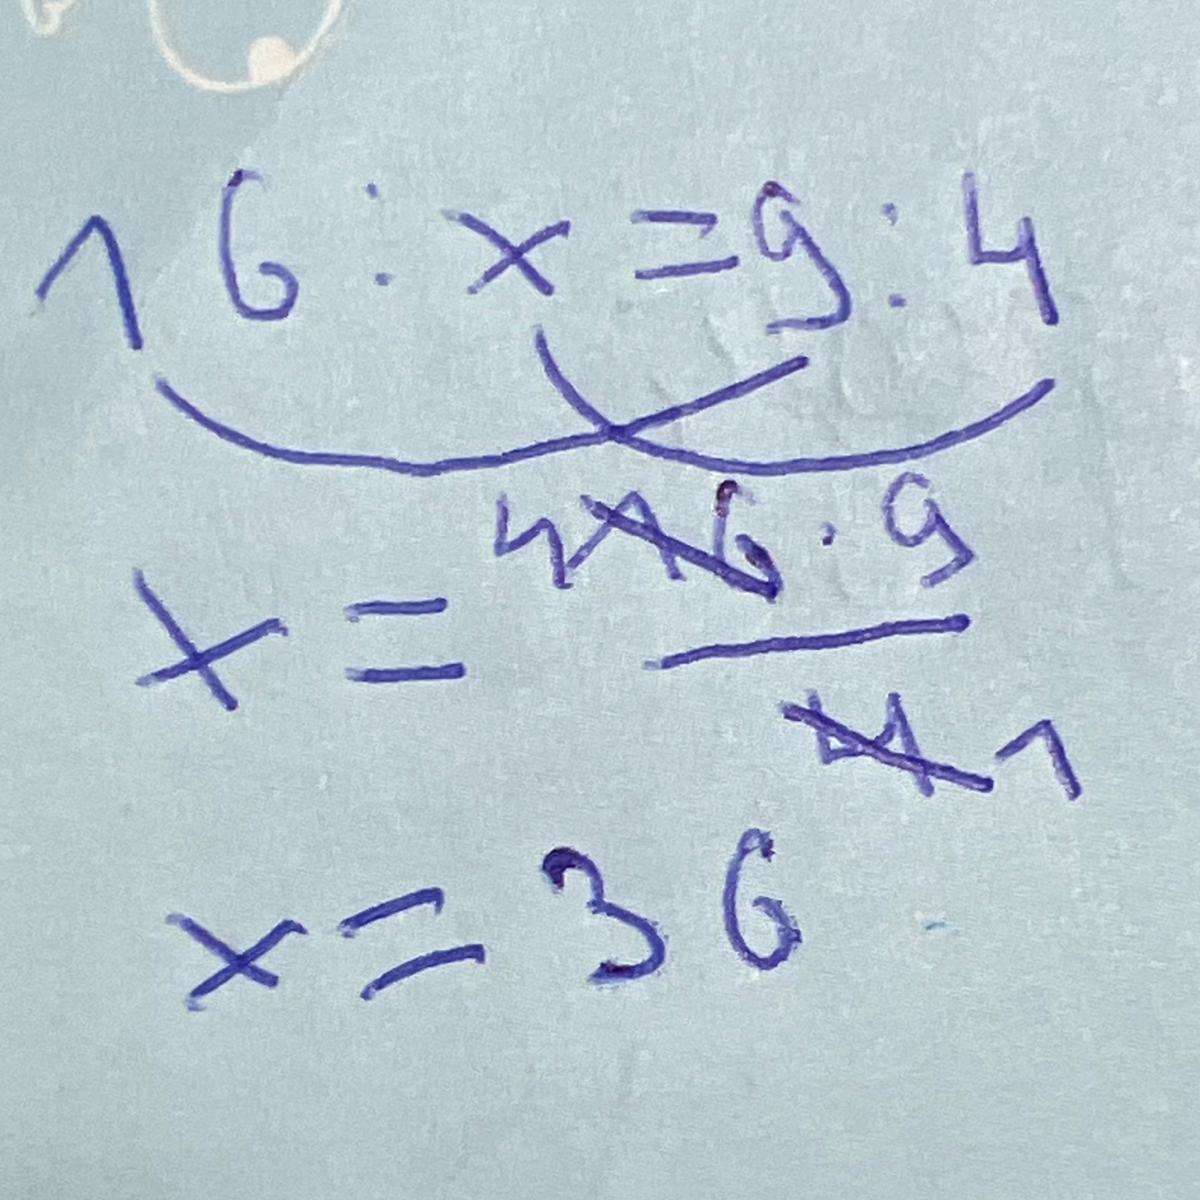 16 : x = 9 : 4
x = 4 16 · 9 / 4 1
x = 36